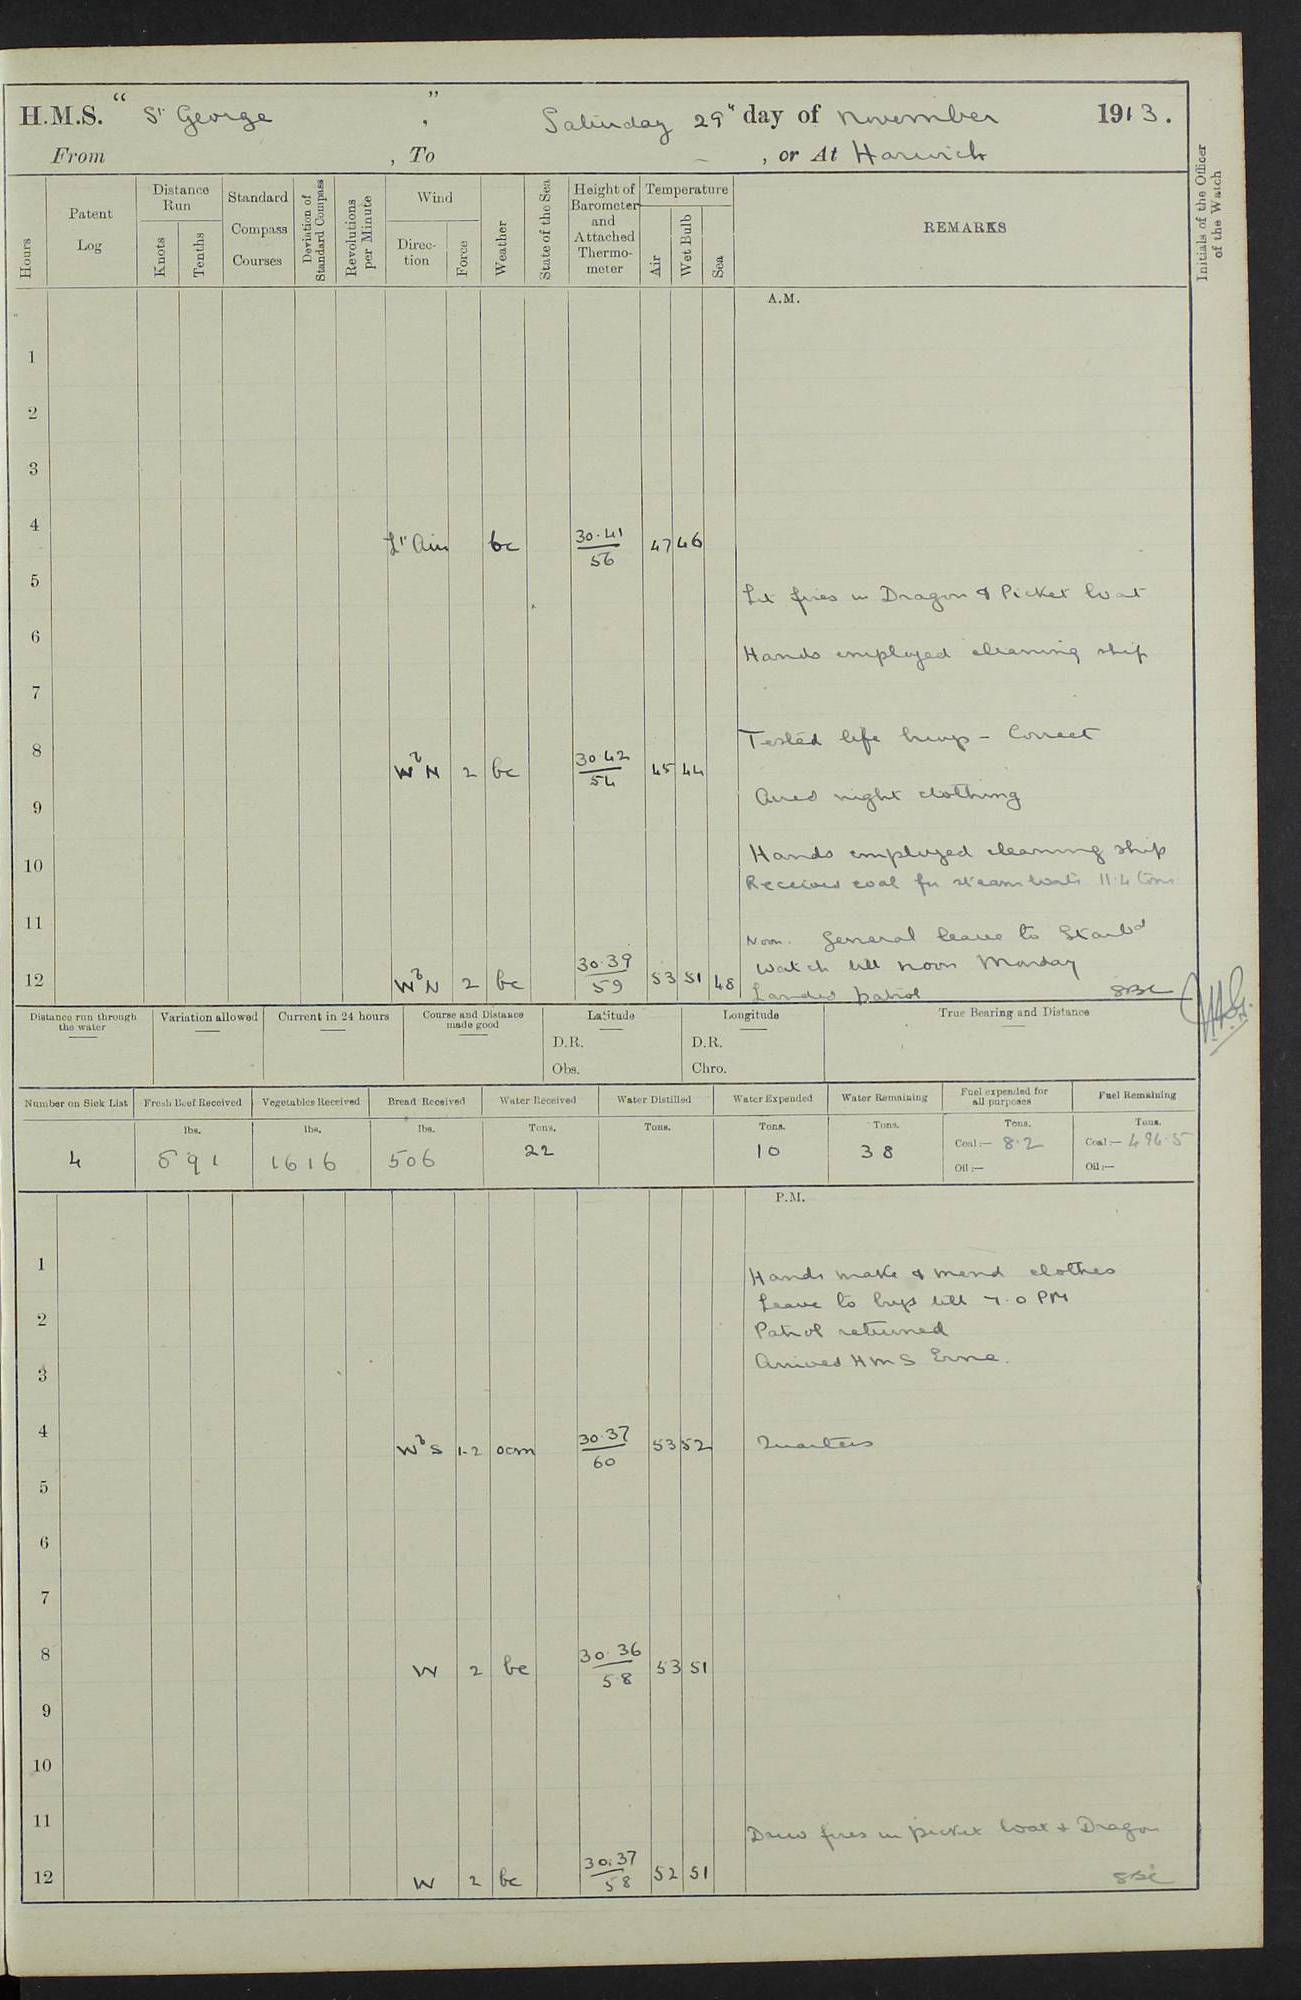 H.M.S. “ Sᵗ George ” , Saturday 29ᵗʰ day of November 1913.
From , To — , or At Harwich
Hours
Patent Log
Distance Run
Knots
Tenths
Standard Compass Courses
Deviation of Standard Compass
Revolutions per Minute
Wind
Direc-tion
Force
Weather
State of the Sea
Height of Barometer and Attached Thermo-meter
Temperature
Air
Wet Bulb
Sea
REMARKS
Initials of the Officer of the Watch
A.M.
1
2
3
4 Lᵗ Airs bc 30·41/56 47 46
5 Lit fires in Dragon & Picket boat
6 Hands employed cleaning ship
7
Tested life buoys – Correct
8 WᵇN 2 bc 30·42/54 45 44
Aired night clothing
9
Hands employed cleaning ship
10
Received coal for steam boats 11·4 tons
11
Noon. General leave to Starbᵈ
12 WᵇN 2 bc 30·39/59 53 51 48 watch till noon Monday
Landed patrol
Distance run through the water
Variation allowed
Current in 24 hours
Course and Distance made good
Latitude
D.R.
Obs.
Longitude
D.R.
Chro.
True Bearing and Distance
Number on Sick List Fresh Beef Received Vegetables Received Bread Received Water Received Water Distilled Water Expended Water Remaining Fuel expended for all purposes Fuel Remaining
lbs. lbs. lbs. Tons. Tons. Tons. Tons. Tons. Tons.
4 591 1616 506 22 10 38 Coal:— 8·2 Coal:— 496·5
Oil:— Oil:—
P.M.
1
Hands make & mend clothes
Leave to boys till 7·0 PM
2
Patrol returned
3 Arrived HMS Erne.
4 WᵇS 1-2 ocm 30·37/60 53 52 Quarters
5
6
7
8 W 2 bc 30·36/58 53 51
9
10
11
Drew fires in picket boat & Dragon
12 W 2 bc 30·37/58 52 51